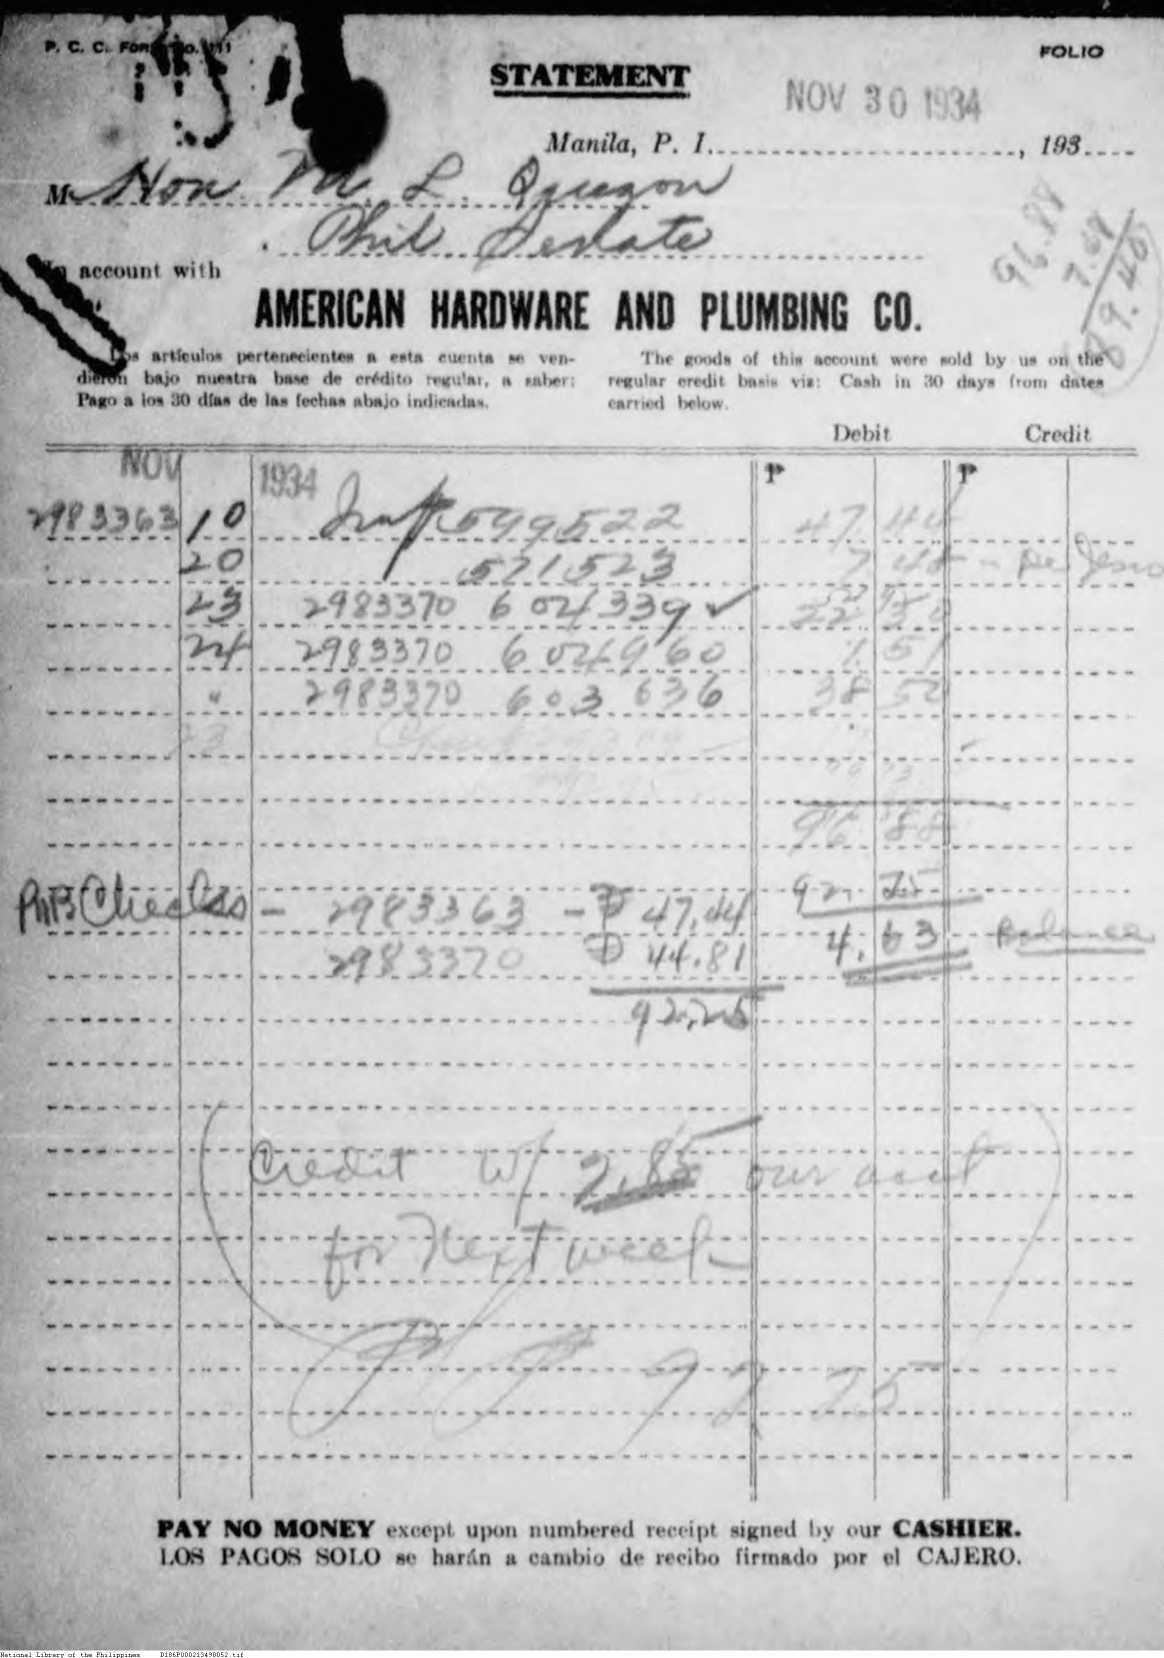 P. C. C. Form No. 111
FOLIO
STATEMENT
NOV 30 1934
Manila, P. I. , 193
M Hon M. L. Quezon
Phil Senate
96.88
7.48
89.40
In account with
AMERICAN HARDWARE AND PLUMBING CO.
Los artículos pertenecientes a esta cuenta se ven-
dieron bajo nuestra base de crédito regular, a saber:
Pago a los 30 días de las fechas abajo indicadas.
The goods of this account were sold by us on the
regular credit basis viz: Cash in 30 days from dates
carried below.
Debit Credit
NOV 1934 ₱ ₱
2983363 10 599522 47.44
20 571523 7 45 - De Jesus
23 2983370 604339 ✓ 22
24 2983370 604960 1.51
" 2983370 603636 38 50
96 88
PNB Checks - 2983363 - ₱ 47.44 92.25
2983370 ₱ 44.81 4.63 Balance
92.25
Credit w/ 2.85 our acct
for next week
92 25
PAY NO MONEY except upon numbered receipt signed by our CASHIER.
LOS PAGOS SOLO se harán a cambio de recibo firmado por el CAJERO.
National Library of the Philippines D186P000213498052.tif